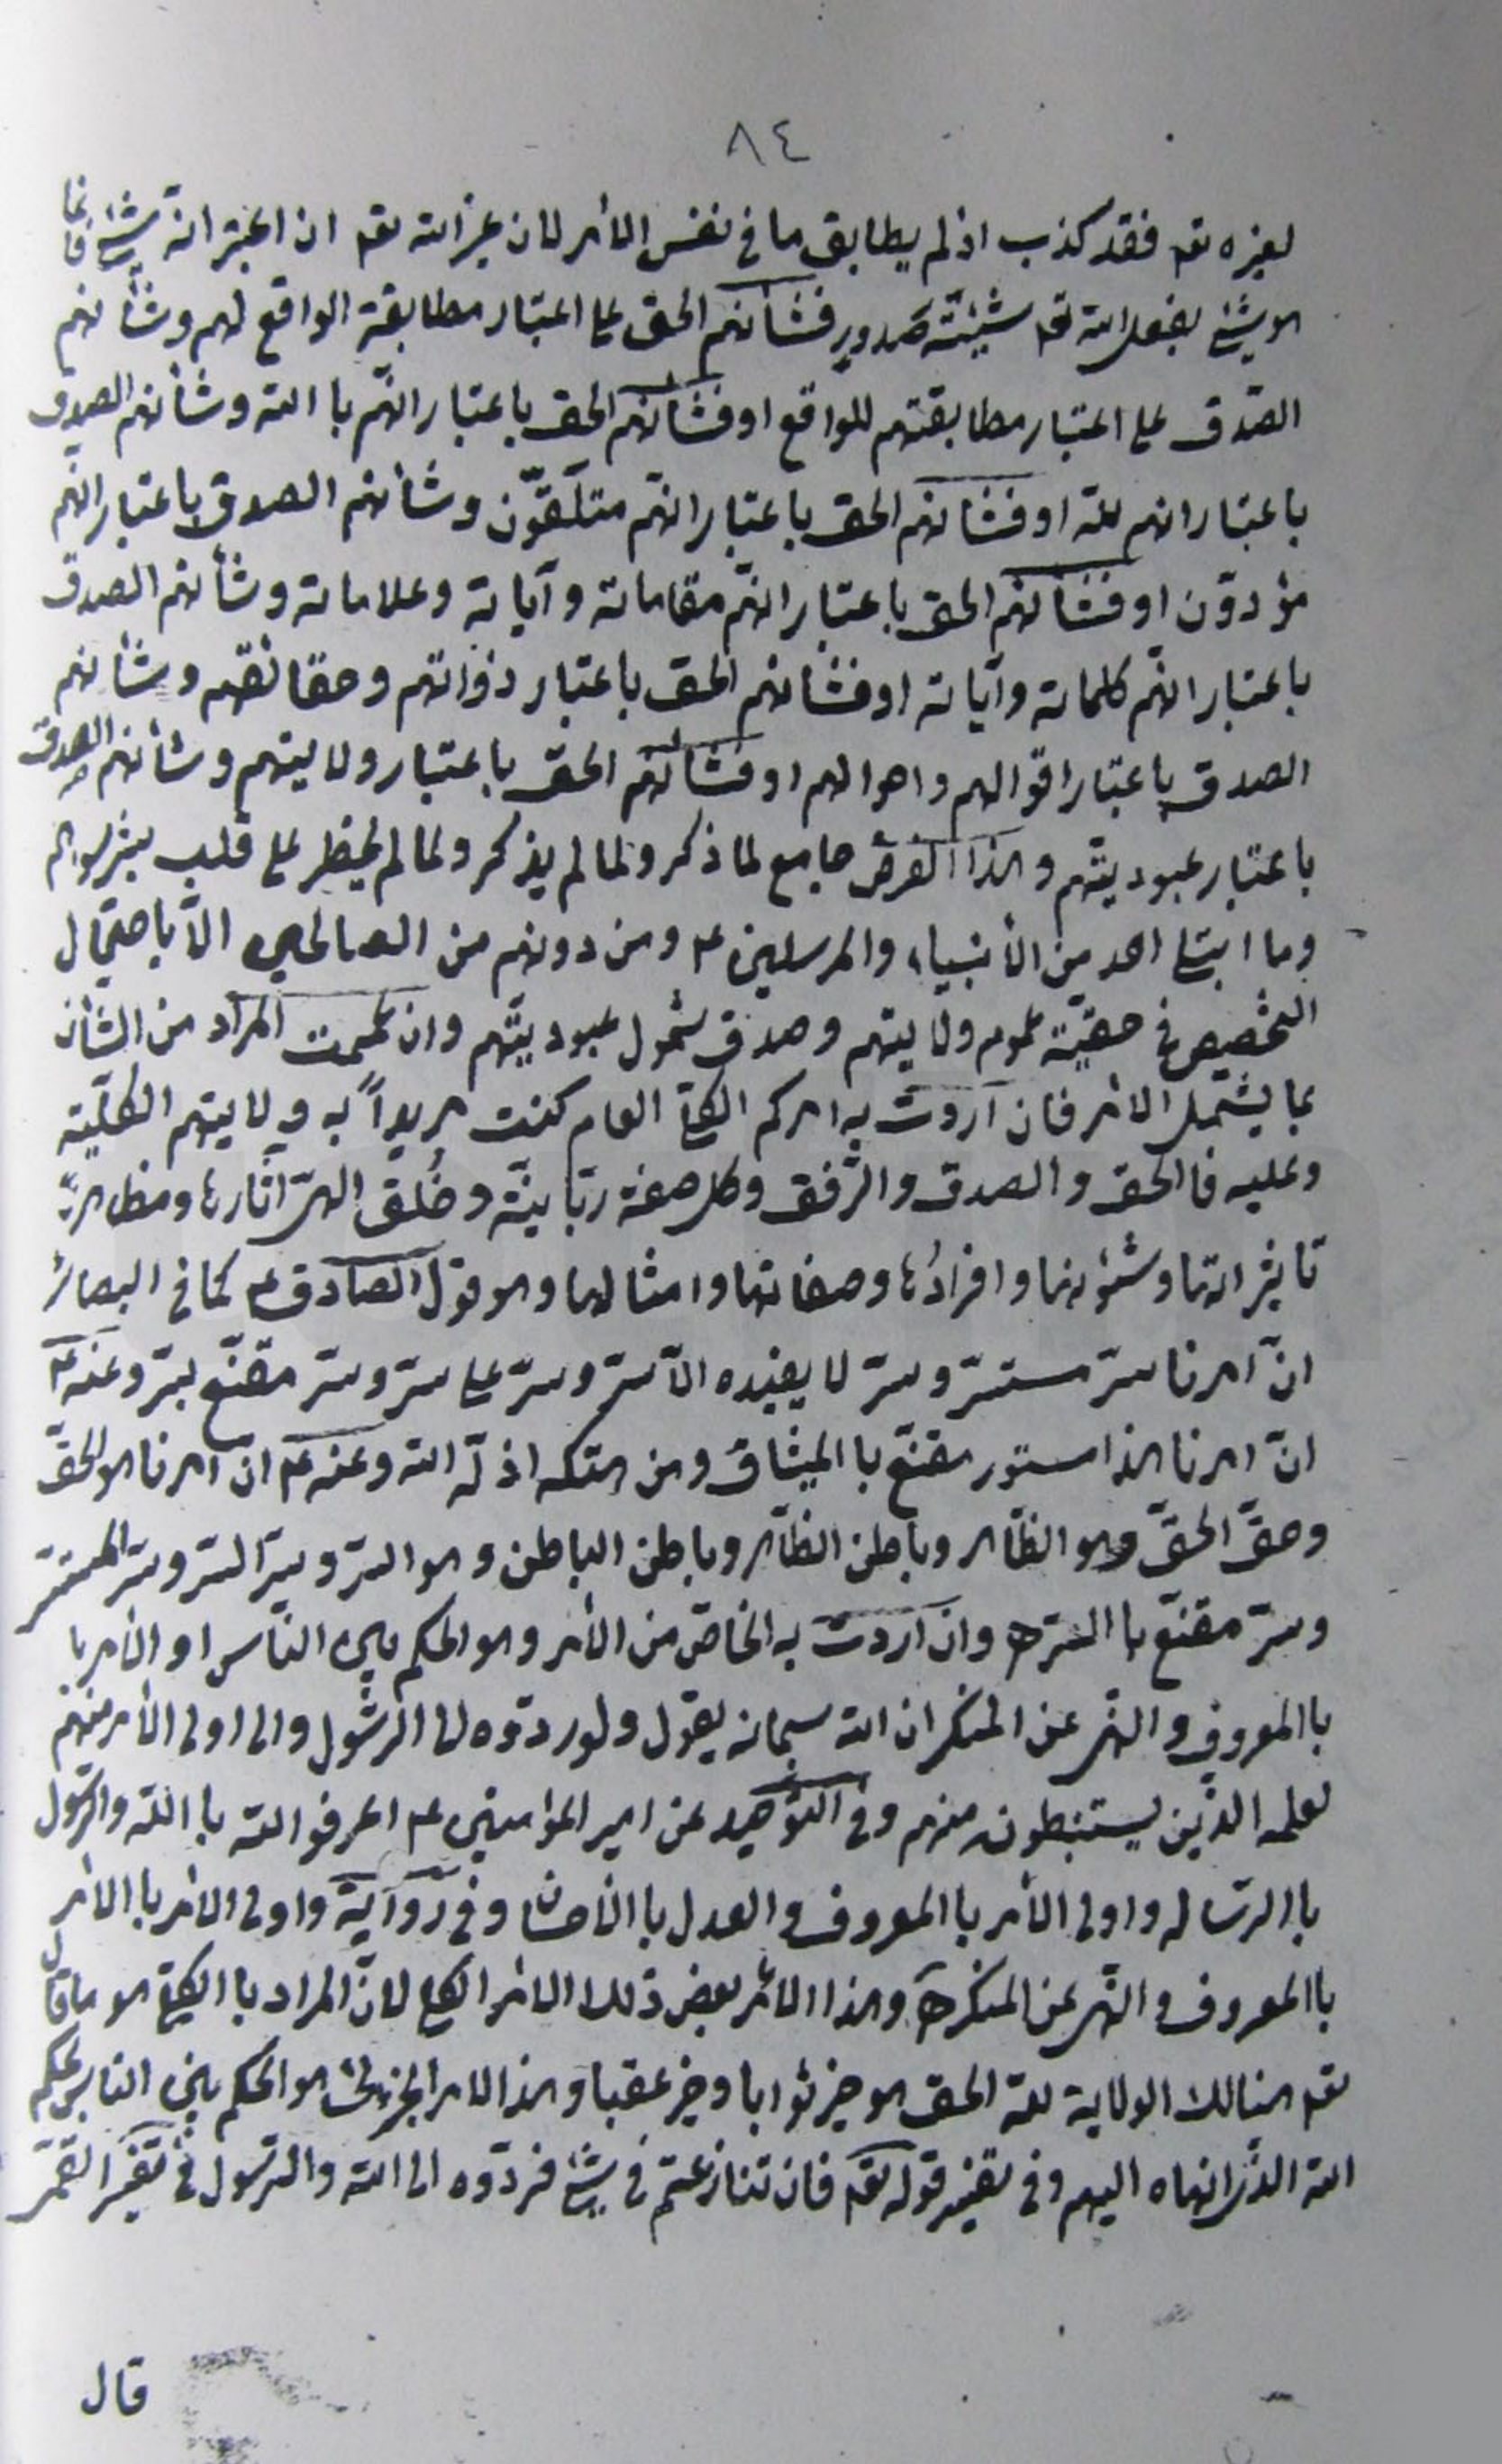 ٨٤
لغيره تع فقد كذب اذ لم يطابق ما فى نفس الأمر لان غير الله تع ان اعتبر انه شئ فانما
هو شئ بفعل الله تع شيئيّة صدور فشأنهم الحق على اعتبار مطابقة الواقع لهم وشأنهم
الصّدق على اعتبار مطابقتهم للواقع او فشأنهم الحق باعتبار انهّم با الله وشأنهم الصدق
باعتبار انهم لله او فشأنهم الحق باعتبار انهّم متلقّون وشأنهم الصدق باعتبار انهّم
مؤدوّن او فشأنهم الحق باعتبار انهّم مقاماته وآياته وعلاماته وشأنهم الصدق
باعتبار انهّم كلماته وآياته او فشأنهم الحق باعتبار ذواتهم وحقائقهم وشأنهم
الصدق باعتبار اقوالهم واحوالهم او فشأنهم الحق باعتبار ولايتهم وشأنهم الصدق
باعتبار عبوديتهّم وهذا الفرض جامع لما ذكر ولما لم يذكر ولما لم يخطر على قلب بشر سواهم
وما ابتلى احد من الأنبياء والمرسلين ع ومن دونهم من الصالحين الاّ باحتمال
التخصيص فى حقيّة عموم ولايتهم وصدق شمول عبوديتّهم وان عممت المراد من الشأن
بما يشتمل الامر فان اردت به امركم الكلىّ العام كنت مريداً به ولايتهم الكليّة
وعليه فا الحق والصدق والرّفق وكل صفة ربّانيّة وخُلق الهىّ اثارها ومظاهر
تاثيراتها وشئونها وافرادُها وصفاتها وامثالها وهو قول الصّادق ع كما فى البصائر
انّ امرنا سرّ مستسرّ وسرّ لا يفيده الاّ سرّ وسرّ على سرّ وسرّ مقنّع بسرّ وعنه ع
انّ امرنا هذا مستور مقنّع با الميثاق ومن هتكه اذلّه الله وعنه ع انّ امرنا هو الحقّ
وحقّ الحقّ وهو الظّاهر وباطن الظّاهر وباطن الباطن وهو السرّ وسرّ السّر وسرّ المستسر
وسرّ مقنّع با السّر ه وان اردت به الخاصّ من الأمر وهو الحكم بين النّاس او الأمر با
با المعروف والنهى عن المنكر ان الله سبحانه يقول ولو ردّوه الى الرّسُول والى اولى الأمر منهم
لعلمه الذّين يستنبطون منهم وفى التّوحيد عن امير المؤمنين ع اعرفوا الله با الله والرّسول
با الرّسالة واولى الأمر با المعروف والعدل با الأحسان وفى رواية واولى الامر با الامر
با المعروف والنّهى عن المنكر ه وهذا الأمر بعض ذلك الامر الكلى لانّ المراد با الكلىّ هو ما قال
تع هنالك الولاية لله الحق هو خير ثوابا وخير عقبا وهذا الامر الجزئى هو الحكم بين الناس بحكم
الله الذّى انهاه اليهم وفى تفسير قوله تع فان تنازعتم فى شئ فردّوه الى الله والرّسول فى تفسير القمىّ
قال